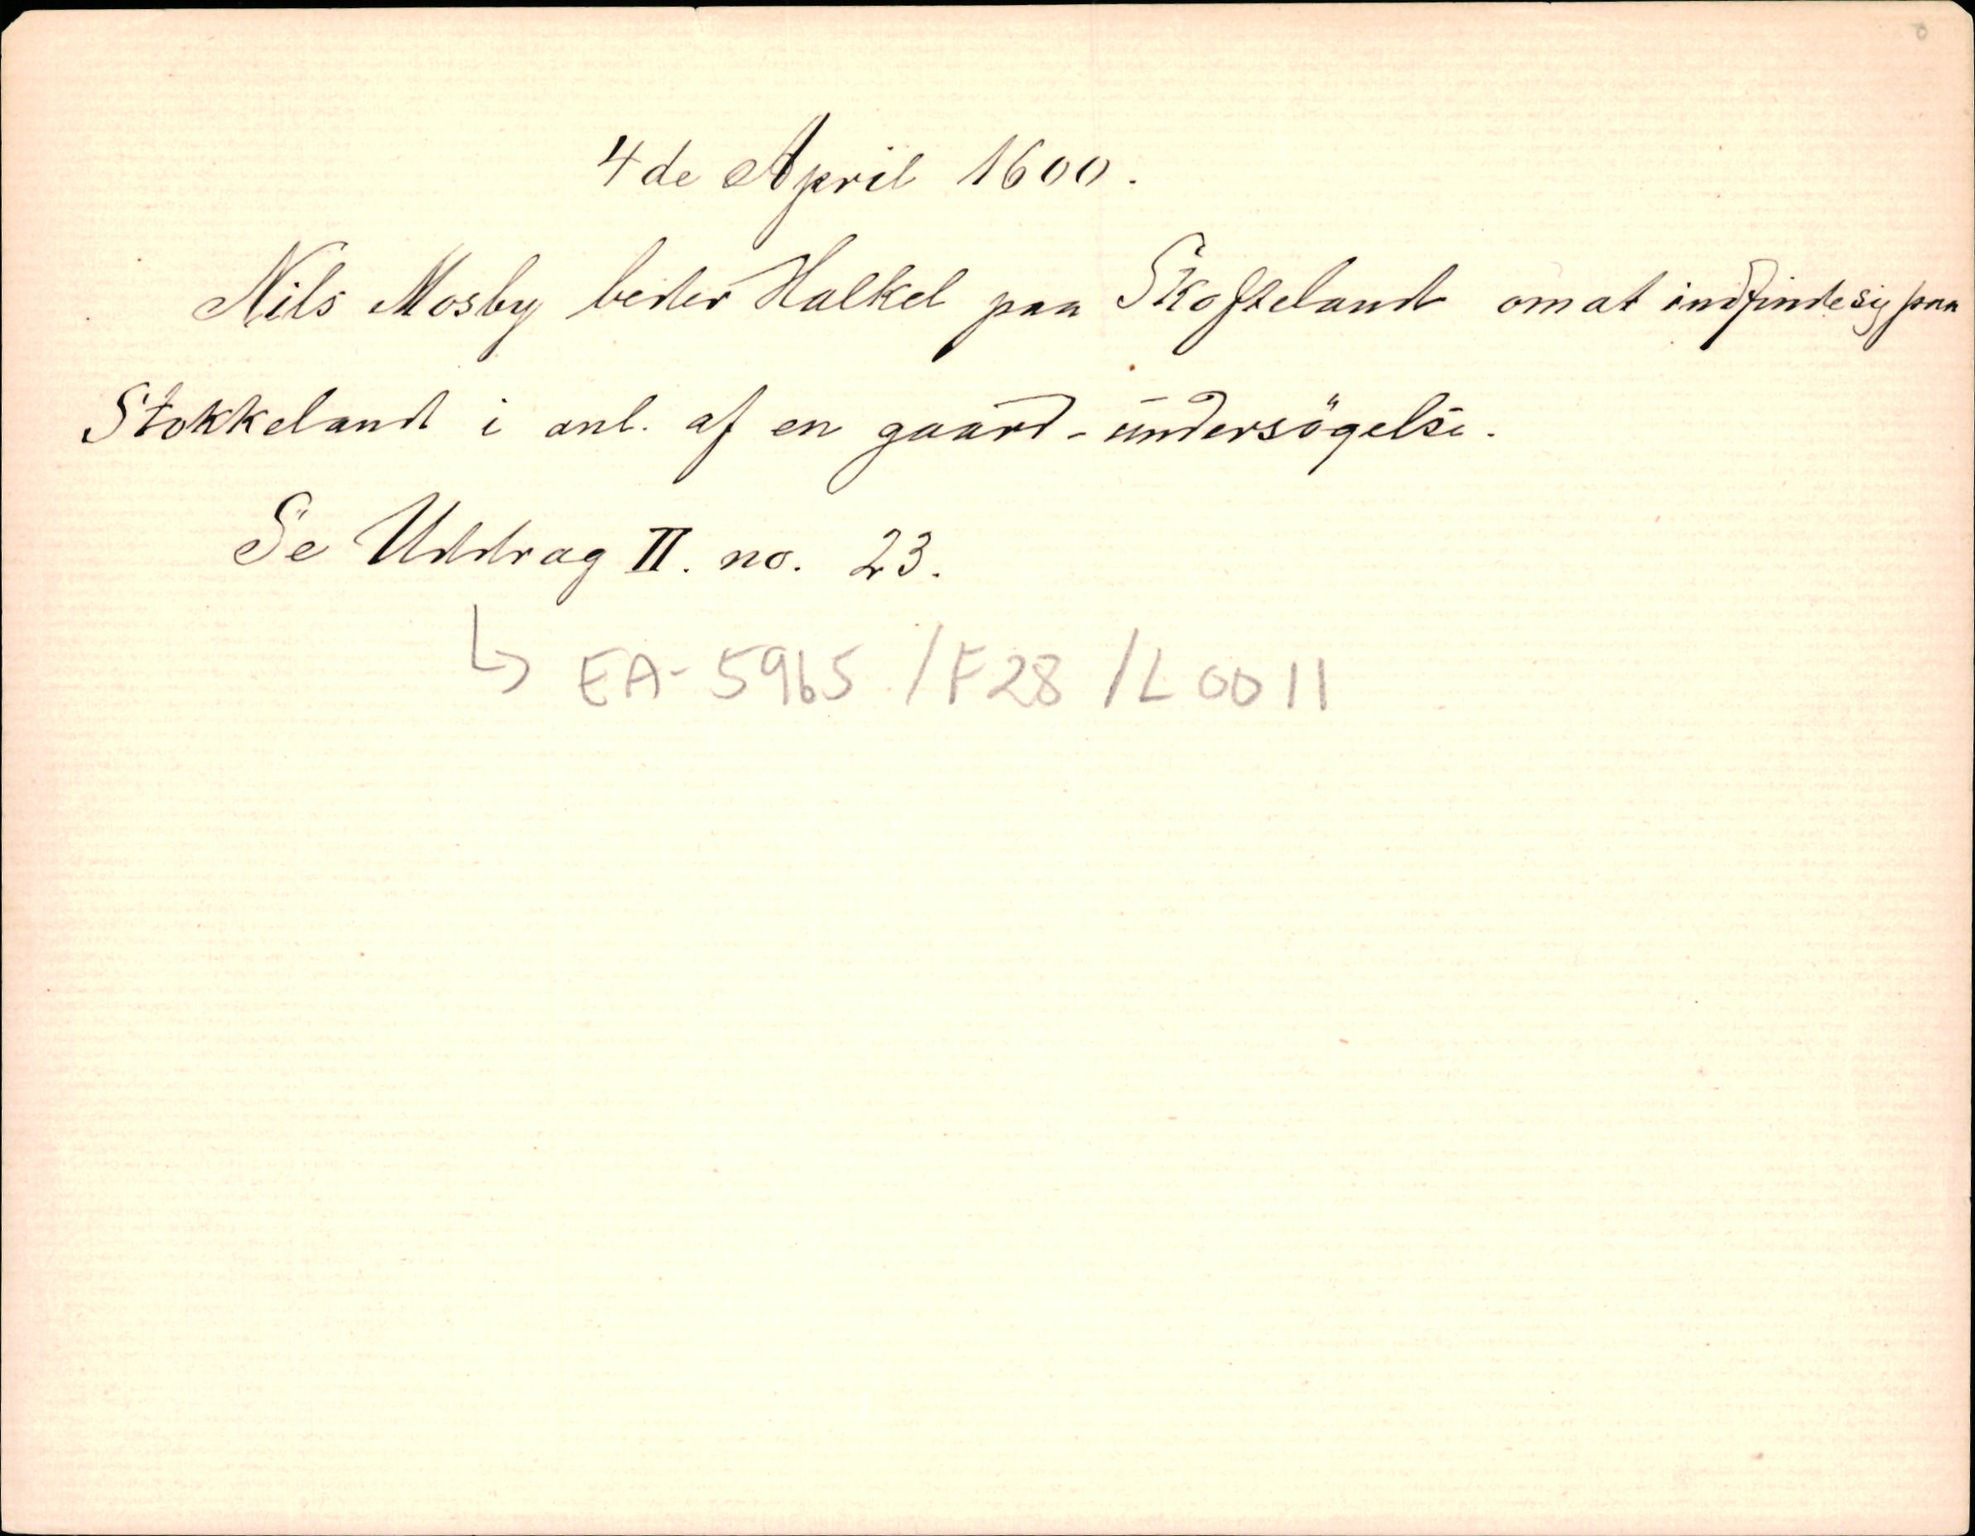 4de April 1600.
Nils Mosby beder Halkel paa Skofteland om at indfinde sig paa
Stokkeland i anl. af en gaard-undersögelse.
Se Uddrag II. no. 23.
↳ EA-5965/F28/L0011